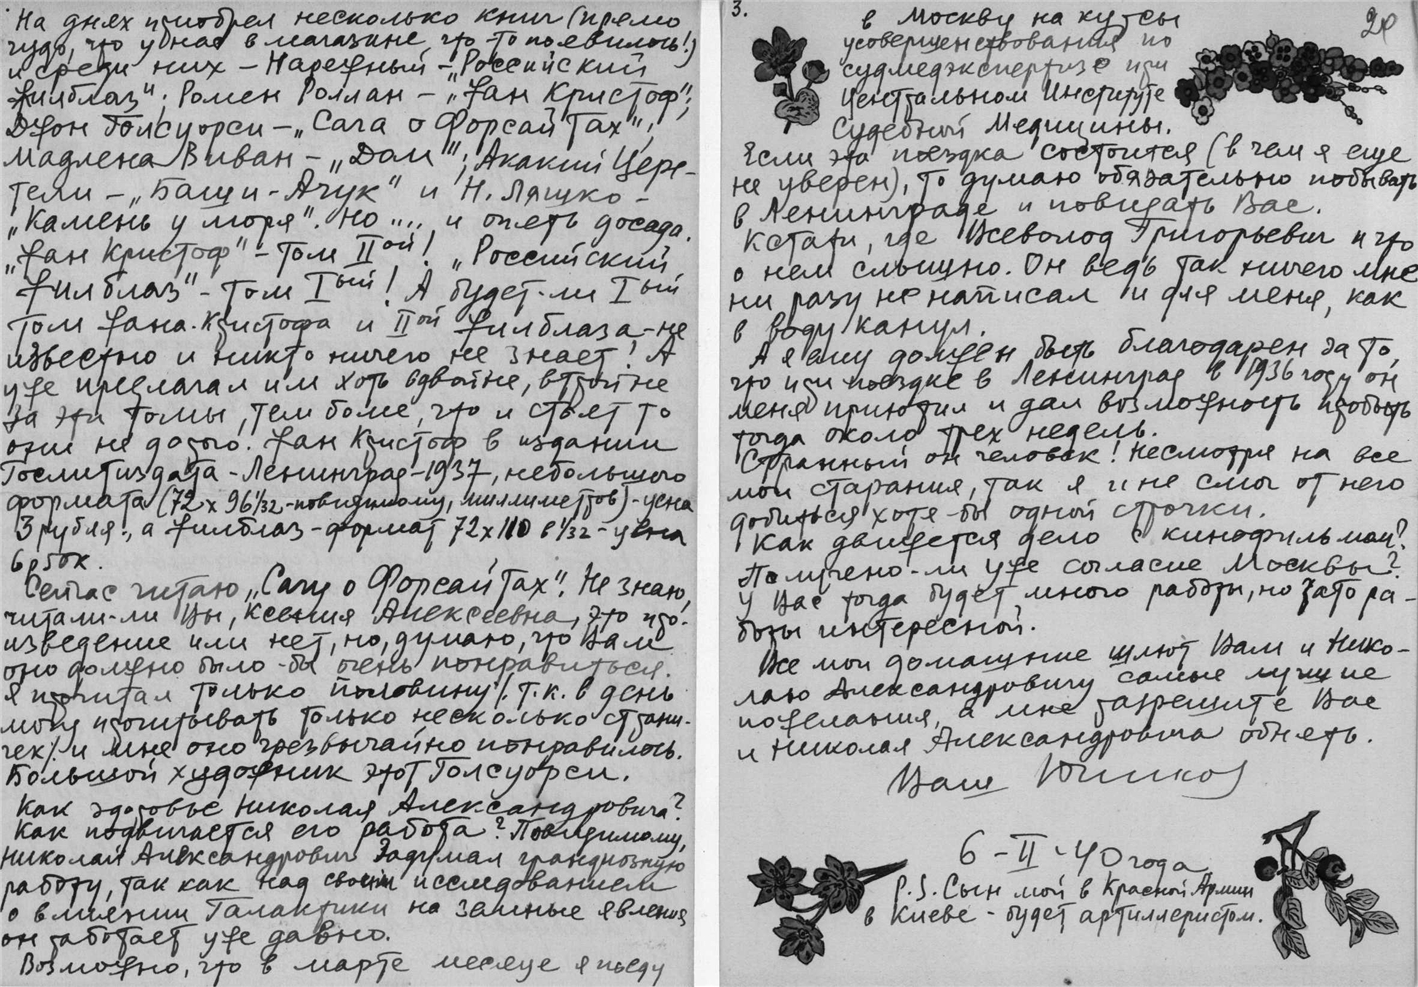 На днях приобрел несколько книг (прямо
чудо, что у нас в магазине, что-то появилось!)
и среди них – Нарежный – „Российский
Жилблаз"; Ромен Роллан – „Жан Кристоф";
Джон Голсуорси – „Сага о Форсайтах";
Мадлена Виван – „Дом"; Акакий Цере-
тели – „Баши-Ачук" и Н. Ляшко –
„Камень у моря". Но .... и опять досада.
„Жан Кристоф" – том IIой! „Российский
Жилблаз" – том Iый! А будет-ли Iый
том Жана-Кристофа и IIой Жилблаза, – не
известно и никто ничего не знает! А
уже предлагал им хоть вдвойне, втройне
за эти томы, тем боле, что и стоят то
они не дорого. Жан Кристоф в издании
Гослитиздата – Ленинград – 1937, небольшого
формата (72 х 96 1/32 – повидимому, миллиметров) – цена
3 рубля, а Жилблаз – формат 72 х 110 в 1/32 – цена
6 р 50 к.
Сейчас читаю „Сагу о Форсайтах". Не знаю,
читали-ли Вы, Ксения Алексеевна, это про-
изведение или нет, но, думаю, что Вам
оно должно было-бы очень понравиться.
Я прочитал только половину (т.к. в день
могу прочитывать только несколько страни-
чек) и мне оно чрезвычайно понравилось.
Большой художник этот Голсуорси.
Как здоровье Николая Александровича?
Как подвигается его работа? Повидимому,
Николай Александрович задумал грандиозную
работу, так как над своим исследованием
о влиянии Галактики на земные явления
он работает уже давно.
Возможно, что в марте месяце я поеду
3.
20
в Москву на курсы
усовершенствования по
судмедэкспертизе при
Центральном Институте
Судебной Медицины.
Если эта поездка состоится (в чем я еще
не уверен), то думаю обязательно побывать
в Ленинграде и повидать Вас.
Кстати, где Всеволод Григорьевич и что
о нем слышно. Он ведь так ничего мне
ни разу не написал и для меня, как
в воду канул.
А я ему должен быть благодарен за то,
что при поездке в Ленинград в 1936 году он
меня приютил и дал возможность пробыть
тогда около трех недель.
Странный он человек! Несмотря на все
мои старания, так я и не смог от него
добиться хотя-бы одной строчки.
Как движется дело с кинофильмом?
Получено-ли уже согласие Москвы?
У Вас тогда будет много работы, но зато ра-
боты интересной.
Все мои домашние шлют Вам и Нико-
лаю Александровичу самые лучшие
пожелания, а мне разрешите Вас
и Николая Александровича обнять.
Ваш
6 – II – 40 года
P.S. Сын мой в Красной Армии
в Киеве – будет артиллеристом.